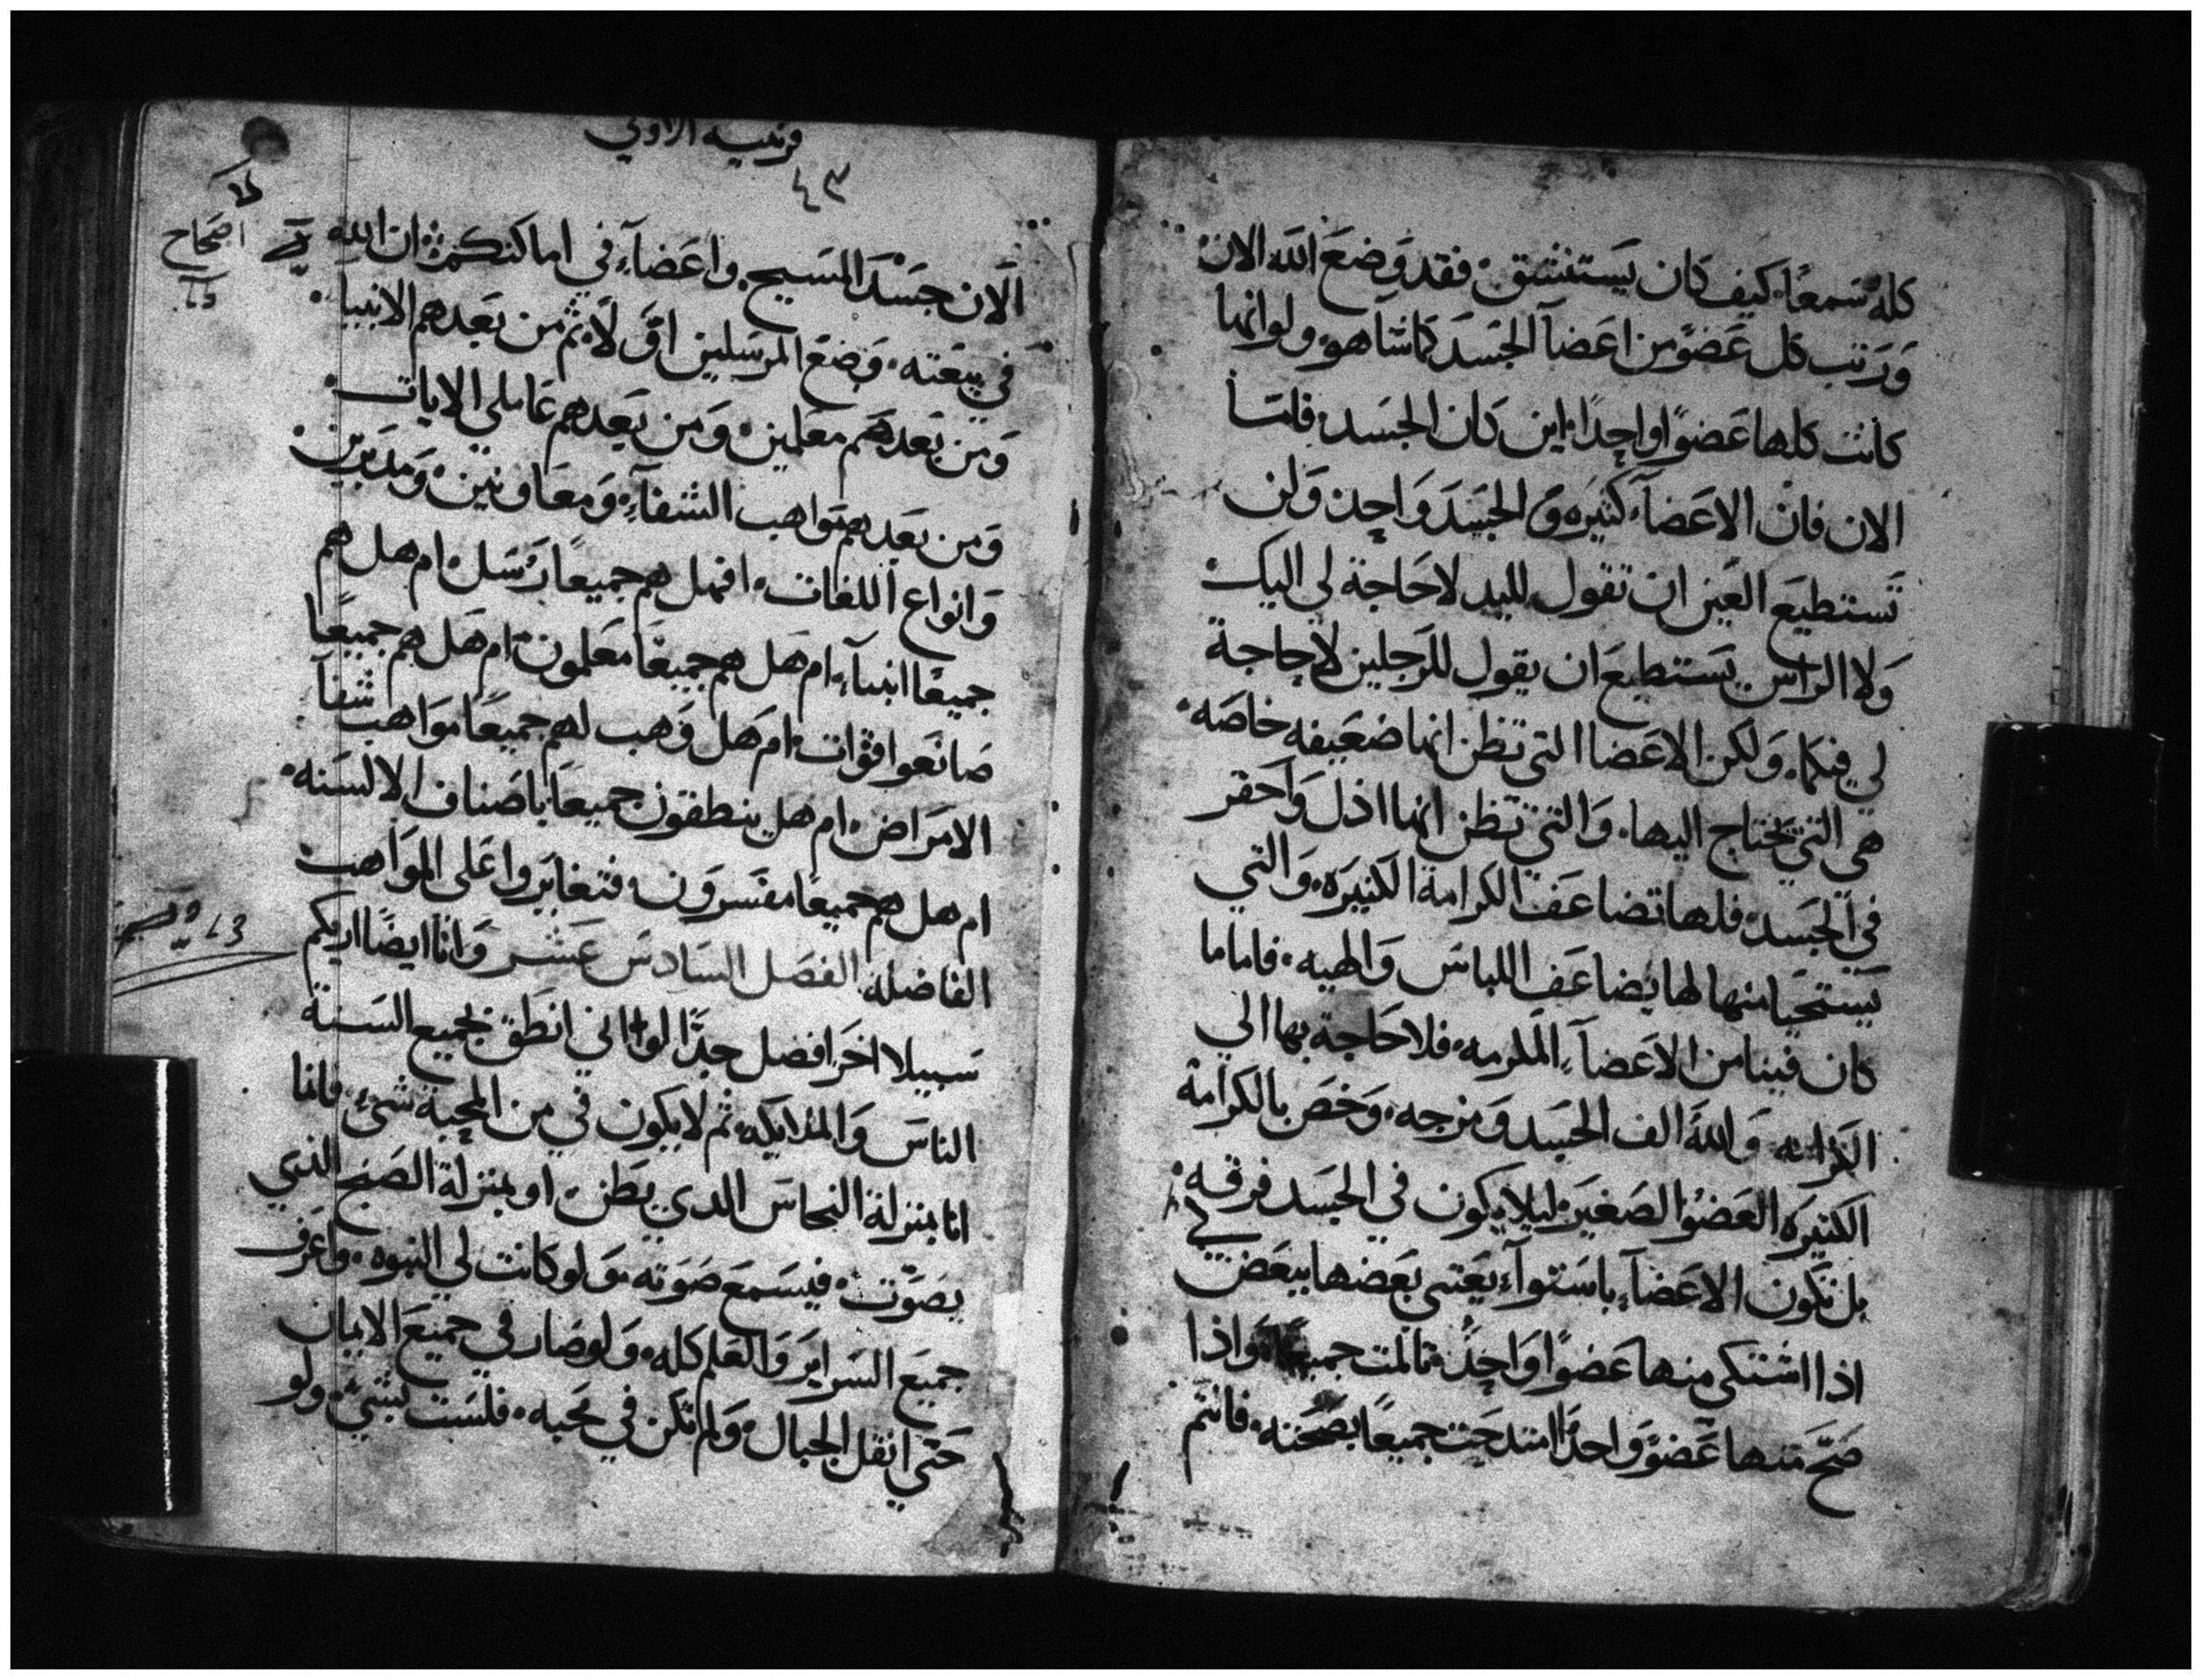 كله سَمعًا، كيف كان يَستنشق، فقد وَضعَ الله الان
وَرَتب كل عَضوٍ من اعَضآ الجسَد كماشآ هو، ولو انها
كانت كلها عَضوًا واحِدًا، اين كان الجسَد، فامَا
الان فان الاعَضآ، كثيره وَالجسَد وَاحِد، وَلن
تَستطيعَ العَين ان تقول لليد لاحَاجة لي اليك
وَلا الراس يستطيعَ ان يقول للرَجلين لاحاجة
لي فيكما، وَلكن الاعَضا التي تظن انها ضعَيفه خاصَه،
هي التي يحتاج اليها، وَالتي تظن انها اذل وَاحَقر
في الجسَد، فلها تضاعَف الكرامة الكثيرَه، وَالتي
يَستحيَا منها لها يضاعَف اللباسَ وَالهيه، فاماما
كان فينا من الاعَضآ، المكرمه، فلا حَاجة بها الي
الكرامه وَاللهَ الف الجسَد وَمزجه، وَخصَ بالكرامة
الكثيرَه العَضوُ الصَغير، ليلا يكون في الجسَد فرقه،
بل تكَون الاعَضآ، باسَتوآ، يَعَتني بعَضها ببعَض
اذا اشتكي منها عَضوًا وَاحِد، تالمت جميعًا، وَاذا
صَحّ مَنها عَضوً وَاحدًا امتدحَت جميعًا بصَحته، فانتم
قرنتيه الاولي
٤٣
اصَحَاح
الَان جسَدَ المسَيح، واعَضآءَ في اماكنكم، ان الله
في بيعَته، وَضعَ المرسَلين اوَّلَا، ثم من بَعَدهم الانبيا،
وَمن بَعَدهَم معَلمين، وَمن بَعَدهم عَاملي الايات،
وَمن بعَدهم مَواهب الشفآءِ، وَمعَاونين، وَمدَبرين،
وَانواع اللغات، افهل هم جميعًا رَسَل، ام هل هم
جميعًا انبيآءَ، ام هَل هم جميعَا مَعَلمون، ام هَل هم جميعًا
صَانعَوا قوَات، ام هَل وَهب لهم جميعًا موَاهب شفآ
الامَرَاض، ام هل ينطقون جميعَا باصَناف الالسَنه،
ام هل هم جميعًا مفسَرون، فتغايَروا عَلي الموَاهب
الفاضله، الفصَل السَادسَ عَشَر وَانا ايضًا اريكم
سَبيلا اخَر افضل جدًّا لو اني انطَق بجميع السَنة
الناسَ وَالملايكه، ثم لايكون في من المحِبة شيء، فانما
انا بمنزلة النحاسَ الدي يطَن، او بمنزلة الصَنج الذي
يصَوّت، فيسَمعَ صَوَته، وَلو كانت لي النبوه، وَاعَرف
جميَع السَرايَر وَالعَلم كله، وَلو صَار في جميَع الايمان
حَتي انقل الجبال، وَلم تكن في محَبه، فلسَت بشيَ، ولو